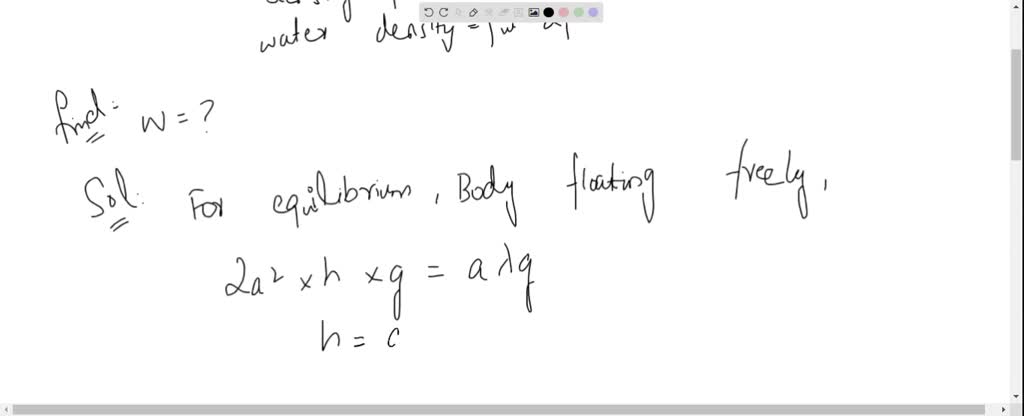 water density = ρw
find: w = ?
Sol: For equilibrium, Body floating freely,
2a² × h × g = aλg
h = c